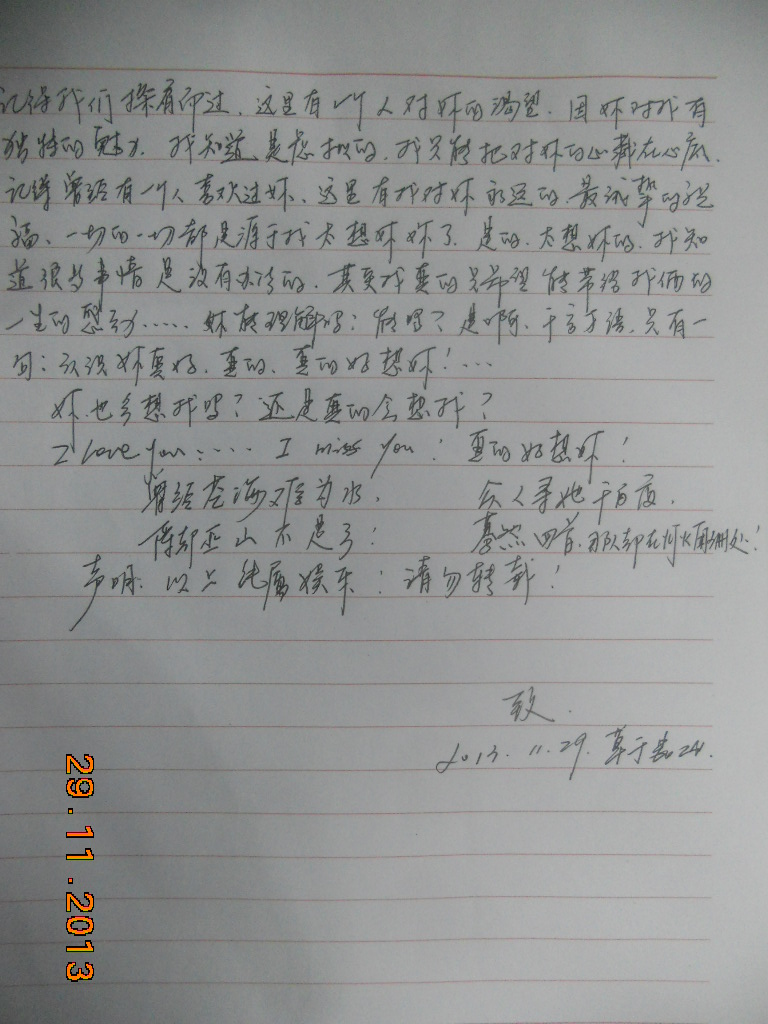 记得我们擦肩而过、这里有一个人对妳的渴望、因妳对我有
独特的魅力、我知道是虚拟的、我只能把对妳的心藏在心底、
记得曾经有一个人喜欢过妳、这里有我对妳永远的、最诚挚的祝
福、一切的一切都是源于我太想妳妳了、是的、太想妳的、我知
道很多事情是没有办法的、其实我真的只希望能带给我俩的
一生的感动……妳能理解吗？能吗？是啊、千言万语、只有一
句：认识妳真好、真的、真的好想妳！…
妳也会想我吗？还是真的会想我？
I love you：…. I miss you！真的好想妳！
曾经苍海难为水、 众人寻她千百度、
除却巫山不是云！ 蓦然回首、那人却在灯火阑珊处！
声明：以上纯属娱乐！请勿转载！
致.
2013.11.29.草于
29.11.2013